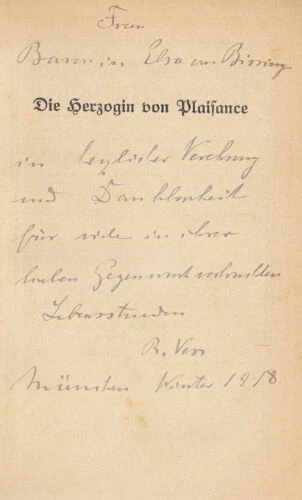 Frau
Baronin Elsa von Bissing
Die Herzogin von Plaisance
in herzlicher Verehrung
und Dankbarkeit
für viele in ihrer
lieben Gegenwart verbrachten
Lebensstunden
R. Voss
München Winter 1918